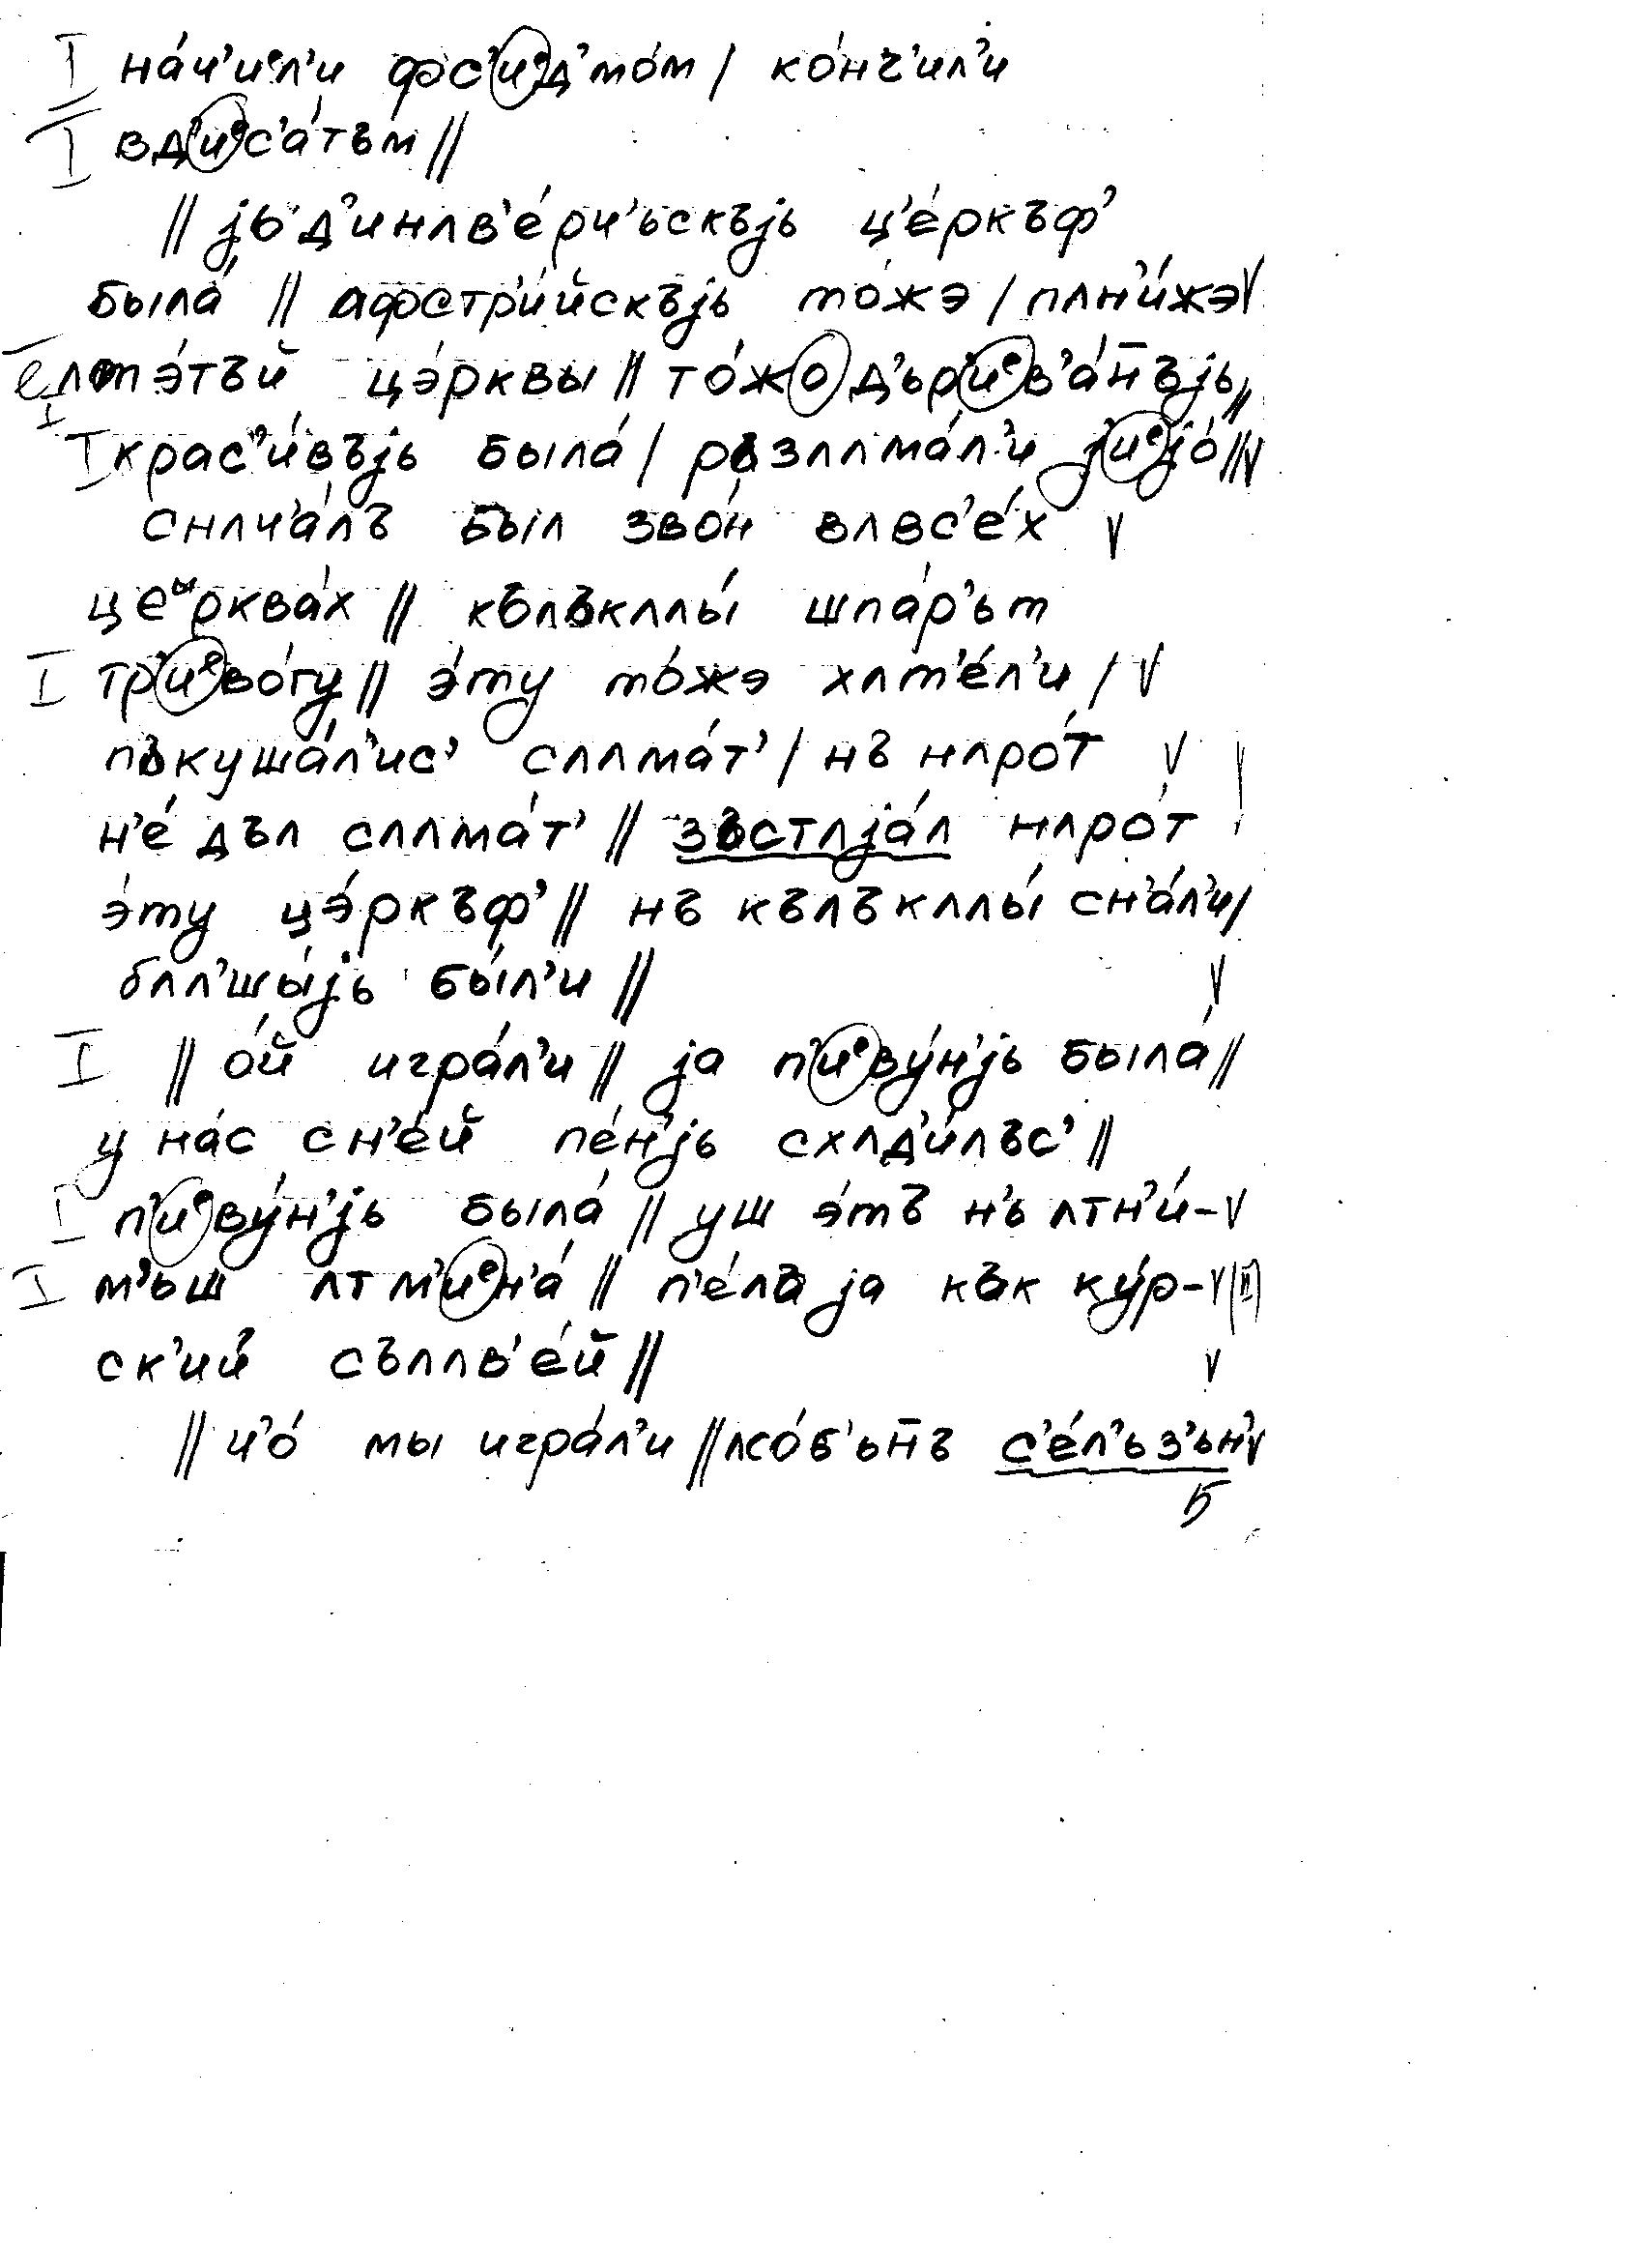 I на́ч'иᵉл'и фс'иᵉд'мо́м / ко́нч'ил'и
I вд'иᵉс'а́тъм //
// jьд'инʌв'е́рч'ьскъjь ц'е́ркъф'
была́ // афстр'и́йскъjь то́жэ / пʌн'и́жэ V
е ʌтэ́тъй цэ́рквы // то́жо д'ьр'иᵉв'а́н̄ъjь //
I I крас'и́въjь была́ / ръзʌлма́л'и jиᵉjо́ // V
снʌч'а́лъ был зво́н вʌвс'е́х V
цеырква́х // кълъкʌлы́ шпа́р'ьт
I тр'иᵉво́гу // э́ту то́жэ хʌт'е́л'и / V
пъкуша́л'ис' слʌма́т' / нъ нʌро́т V
н'е́ дъл слʌма́т' // зъстʌjа́л нʌро́т
э́ту цэ́ркъф' // нъ кълъкʌлы́ сн'а́л'и /
бʌл'шы́jь бы́л'и // V
I // о́й игра́л'и // jа п'иᵉву́н'jь была́ //
у на́с сн'е́й пе́н'jь схʌд'и́лъс' //
I п'иᵉву́н'jь была́ // уш э́тъ н'ь ʌтн'и́- V
I м'ьш ʌтм'иᵉн'а́ // п'е́лъ jа как ку́р- V (II)
ск'ий сълʌв'е́й // V
// ч'о́ мы игра́л'и // ʌсо́б'ьн̄ъ с'е́л'ьз'ьн' V
5